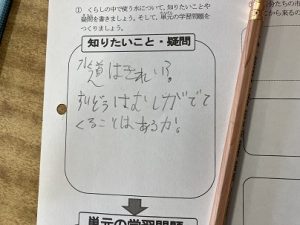 ① くらしの中で使う水について、知りたいことや
疑問を書きましょう。そして、単元の学習問題を
つくりましょう。
知りたいこと・疑問
水道はきれい?
すいどうはむしがでて
くることはあるか。
単元の学習問題